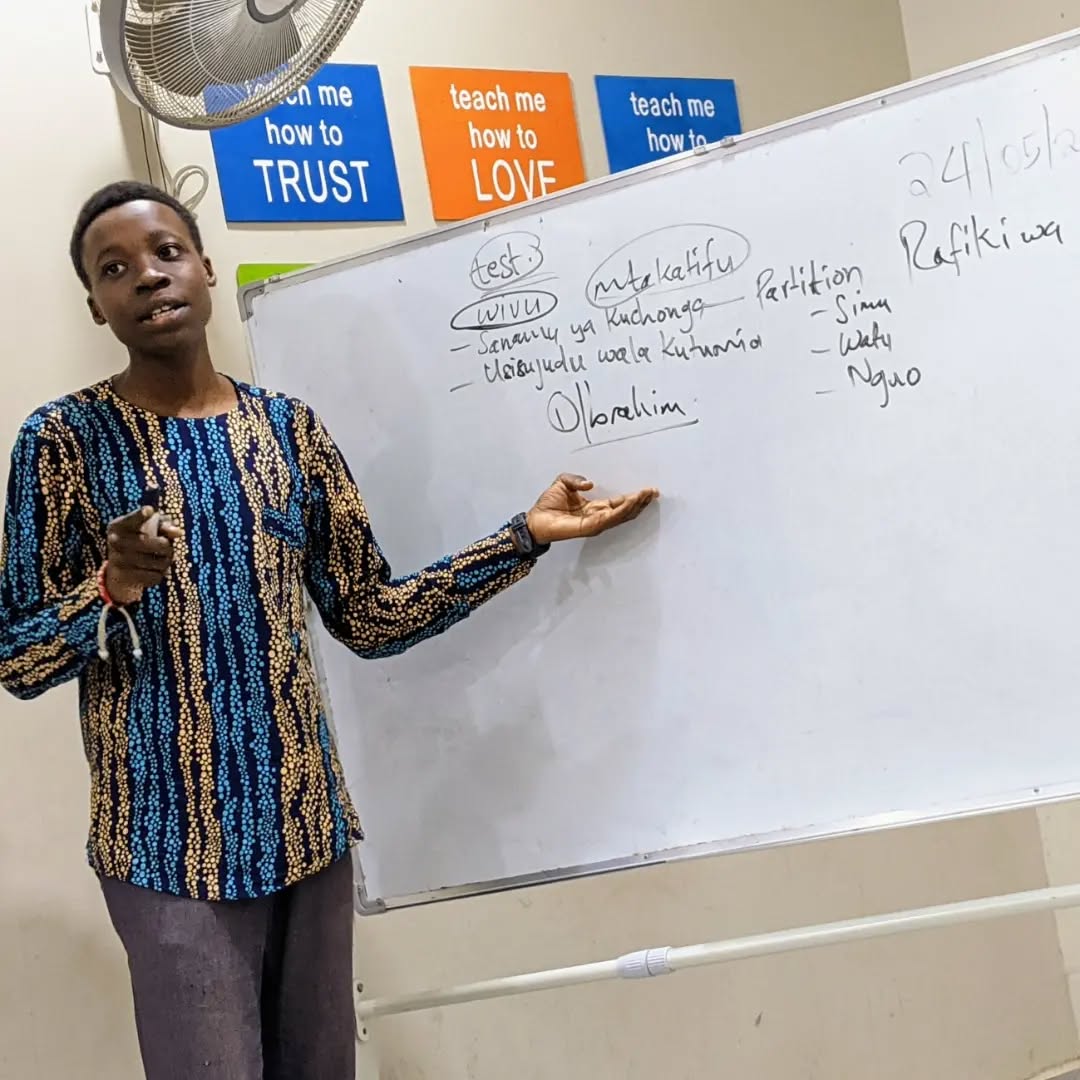 teach me
how to
TRUST
teach me
how to
LOVE
teach me
how to
24/05/2
test 3
mtakatifu
Rafiki wa
wivu
Partition
- Sanamu ya kuchonga
- Simu
- Usisujudu wala kutumia
- Watu
- Nguo
① Ibrahim